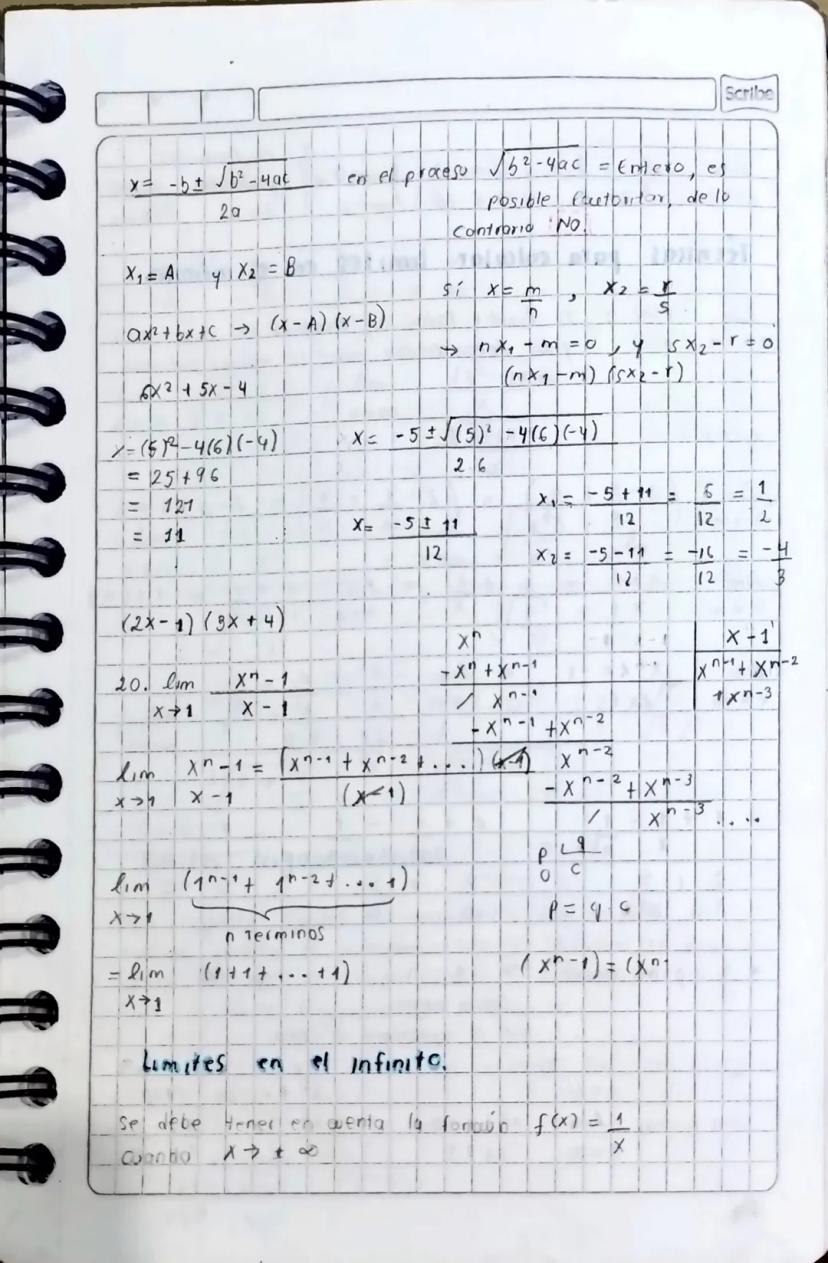 Scribe
x = -b ± √b² - 4ac / 2a
en el proceso √b² - 4ac = Entero, es
posible factorizar, de lo
contrario NO.
x₁ = A y x₂ = B
sí x = m/n , x₂ = r/s
ax² + bx + c → (x - A) (x - B)
→ nx₁ - m = 0, y sx₂ - r = 0
(nx₁ - m) (sx₂ - r)
6x² + 5x - 4
x = (5)² - 4(6)(-4)
= 25 + 96
= 121
= 11
x = -5 ± √(5)² - 4(6)(-4) / 2 6
x = -5 ± 11 / 12
x₁ = -5 + 11 / 12 = 6/12 = 1/2
x₂ = -5 - 11 / 12 = -16/12 = -4/3
(2x - 1) (3x + 4)
20. lim x→1 xⁿ - 1 / x - 1
xⁿ | x - 1
-xⁿ + xⁿ⁻¹ | xⁿ⁻¹ + xⁿ⁻²
/ xⁿ⁻¹ | + xⁿ⁻³
-xⁿ⁻¹ + xⁿ⁻²
xⁿ⁻²
-xⁿ⁻² + xⁿ⁻³
/ xⁿ⁻³ ....
lim x→1 xⁿ - 1 / x - 1 = (xⁿ⁻¹ + xⁿ⁻² + ...) (x-1) / (x-1)
p | q
0 c
p = q · c
lim x→1 (1ⁿ⁻¹ + 1ⁿ⁻² + ... 1)
n terminos
= lim x→1 (1 + 1 + ... + 1)
(xⁿ - 1) = (xⁿ
Limites en el infinito.
Se debe tener en cuenta la función f(x) = 1/x
cuando x → ± ∞